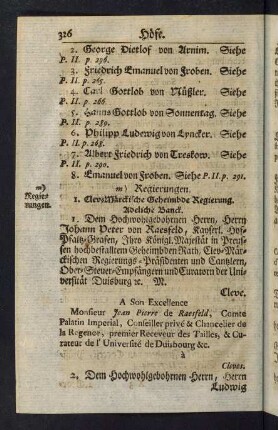 326 Höfe.
2. George Dietlof von Arnim. Siehe
P. II. p. 236.
3. Friedrich Emanuel von Froben. Siehe
P. II. p. 265.
4. Carl Gottlob von Nüßler. Siehe
P. II. p. 266.
5. Hanns Gottlob von Sonnentag. Siehe
P. II. p. 289.
6. Philipp Ludewig von Lyncker. Siehe
P. II. p. 268.
7. Albert Friedrich von Treskow. Siehe
P. II. p. 290.
8. Emanuel von Froben. Siehe P. II. p. 291.
m) Regierungen.
m)
Regie-
rungen.
1. Clev-Märckische Geheimbde Regierung.
Adeliche Banck.
1. Dem Hochwohlgebohrnen Herrn, Herrn
Johann Peter von Raesfeld, Kayserl. Hof-
Pfaltz-Grafen, Ihro Königl. Majestät in Preus-
sen hochbestalltem Geheimbden Rath, Clev-Mär-
ckischen Regierungs-Präsidenten und Cantzlern,
Ober-Steuer-Empfängern und Curatorn der Uni-
versität Duisburg ꝛc. M.
Cleve.
A Son Excellence
Monsieur Jean Pierre de Raesfeld, Comte
Palatin Imperial, Conseiller privé & Chancelier de
la Regence, premier Receveur des Tailles, & Cu-
rateur de l' Université de Duisbourg &c.
à
Cleves.
2. Dem Hochwohlgebohrnen Herrn, Herrn
Ludwig